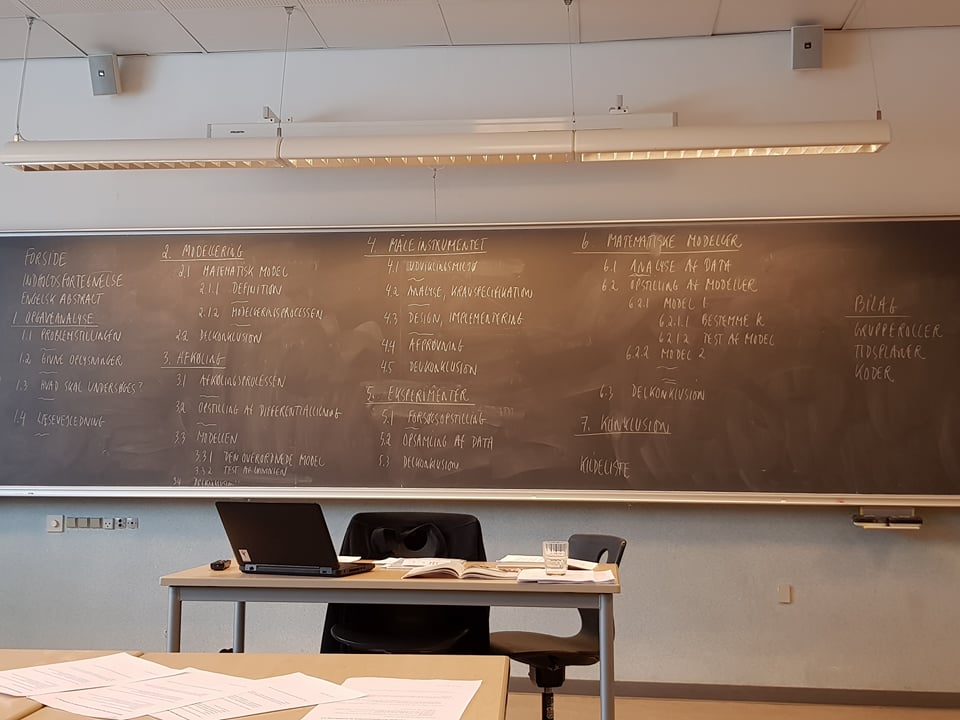 FORSIDE
INDHOLDSFORTEGNELSE
ENGELSK ABSTRACT
1. OPGAVEANALYSE
1.1 PROBLEMSTILLINGEN
1.2 GIVNE OPLYSNINGER
1.3 HVAD SKAL UNDERSØGES?
1.4 LÆSEVEJLEDNING
2. MODELLERING
2.1 MATEMATISK MODEL
2.1.1 DEFINITION
2.1.2 MODELLERINGSPROCESSEN
2.2 DELKONKLUSION
3. AFKØLING
3.1 AFKØLINGSPROCESSEN
3.2 OPSTILLING AF DIFFERENTIALLIGNING
3.3 MODELLEN
3.3.1 DEN OVERORDNEDE MODEL
3.3.2 TEST AF
3.4 DELKONKLUSION
4. MÅLEINSTRUMENTET
4.1 UDVIKLINGSMILJØ
4.2 ANALYSE, KRAVSPECIFIKATION
4.3 DESIGN, IMPLEMENTERING
4.4 AFPRØVNING
4.5 DELKONKLUSION
5. EKSPERIMENTER
5.1 FORSØGSOPSTILLING
5.2 OPSAMLING AF DATA
5.3 DELKONKLUSION
6. MATEMATISKE MODELLER
6.1 ANALYSE AF DATA
6.2 OPSTILLING AF MODELLER
6.2.1 MODEL 1
6.2.1.1 BESTEMME K
6.2.1.2 TEST AF MODEL
6.2.2 MODEL 2
6.3 DELKONKLUSION
7. KONKLUSION
KILDELISTE
BILAG
GRUPPEROLLER
TIDSPLANER
KODER